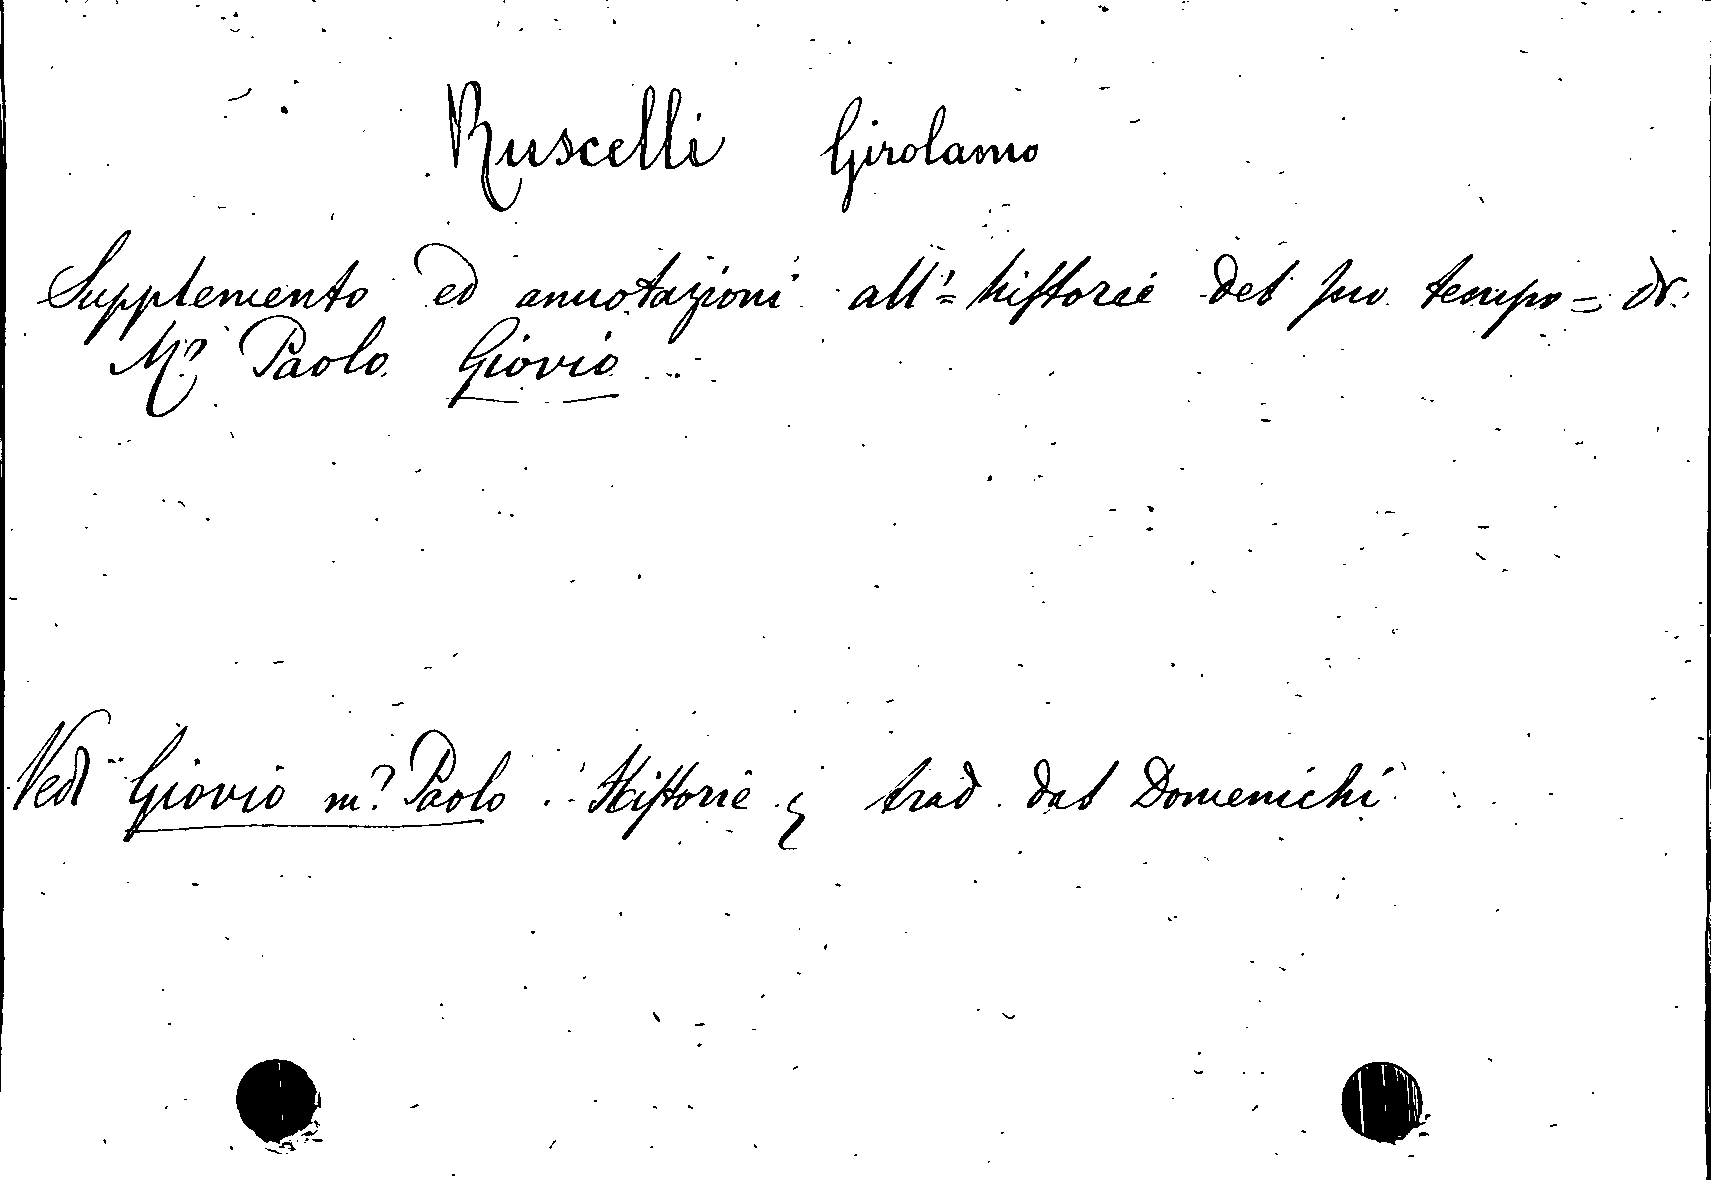 Ruscelli Girolamo
Supplemento ed annotazioni all'= historie del suo tempo = di
M.r Paolo Giovio
Vedi Giovio m.r Paolo. Historie trad. dal Domenichi